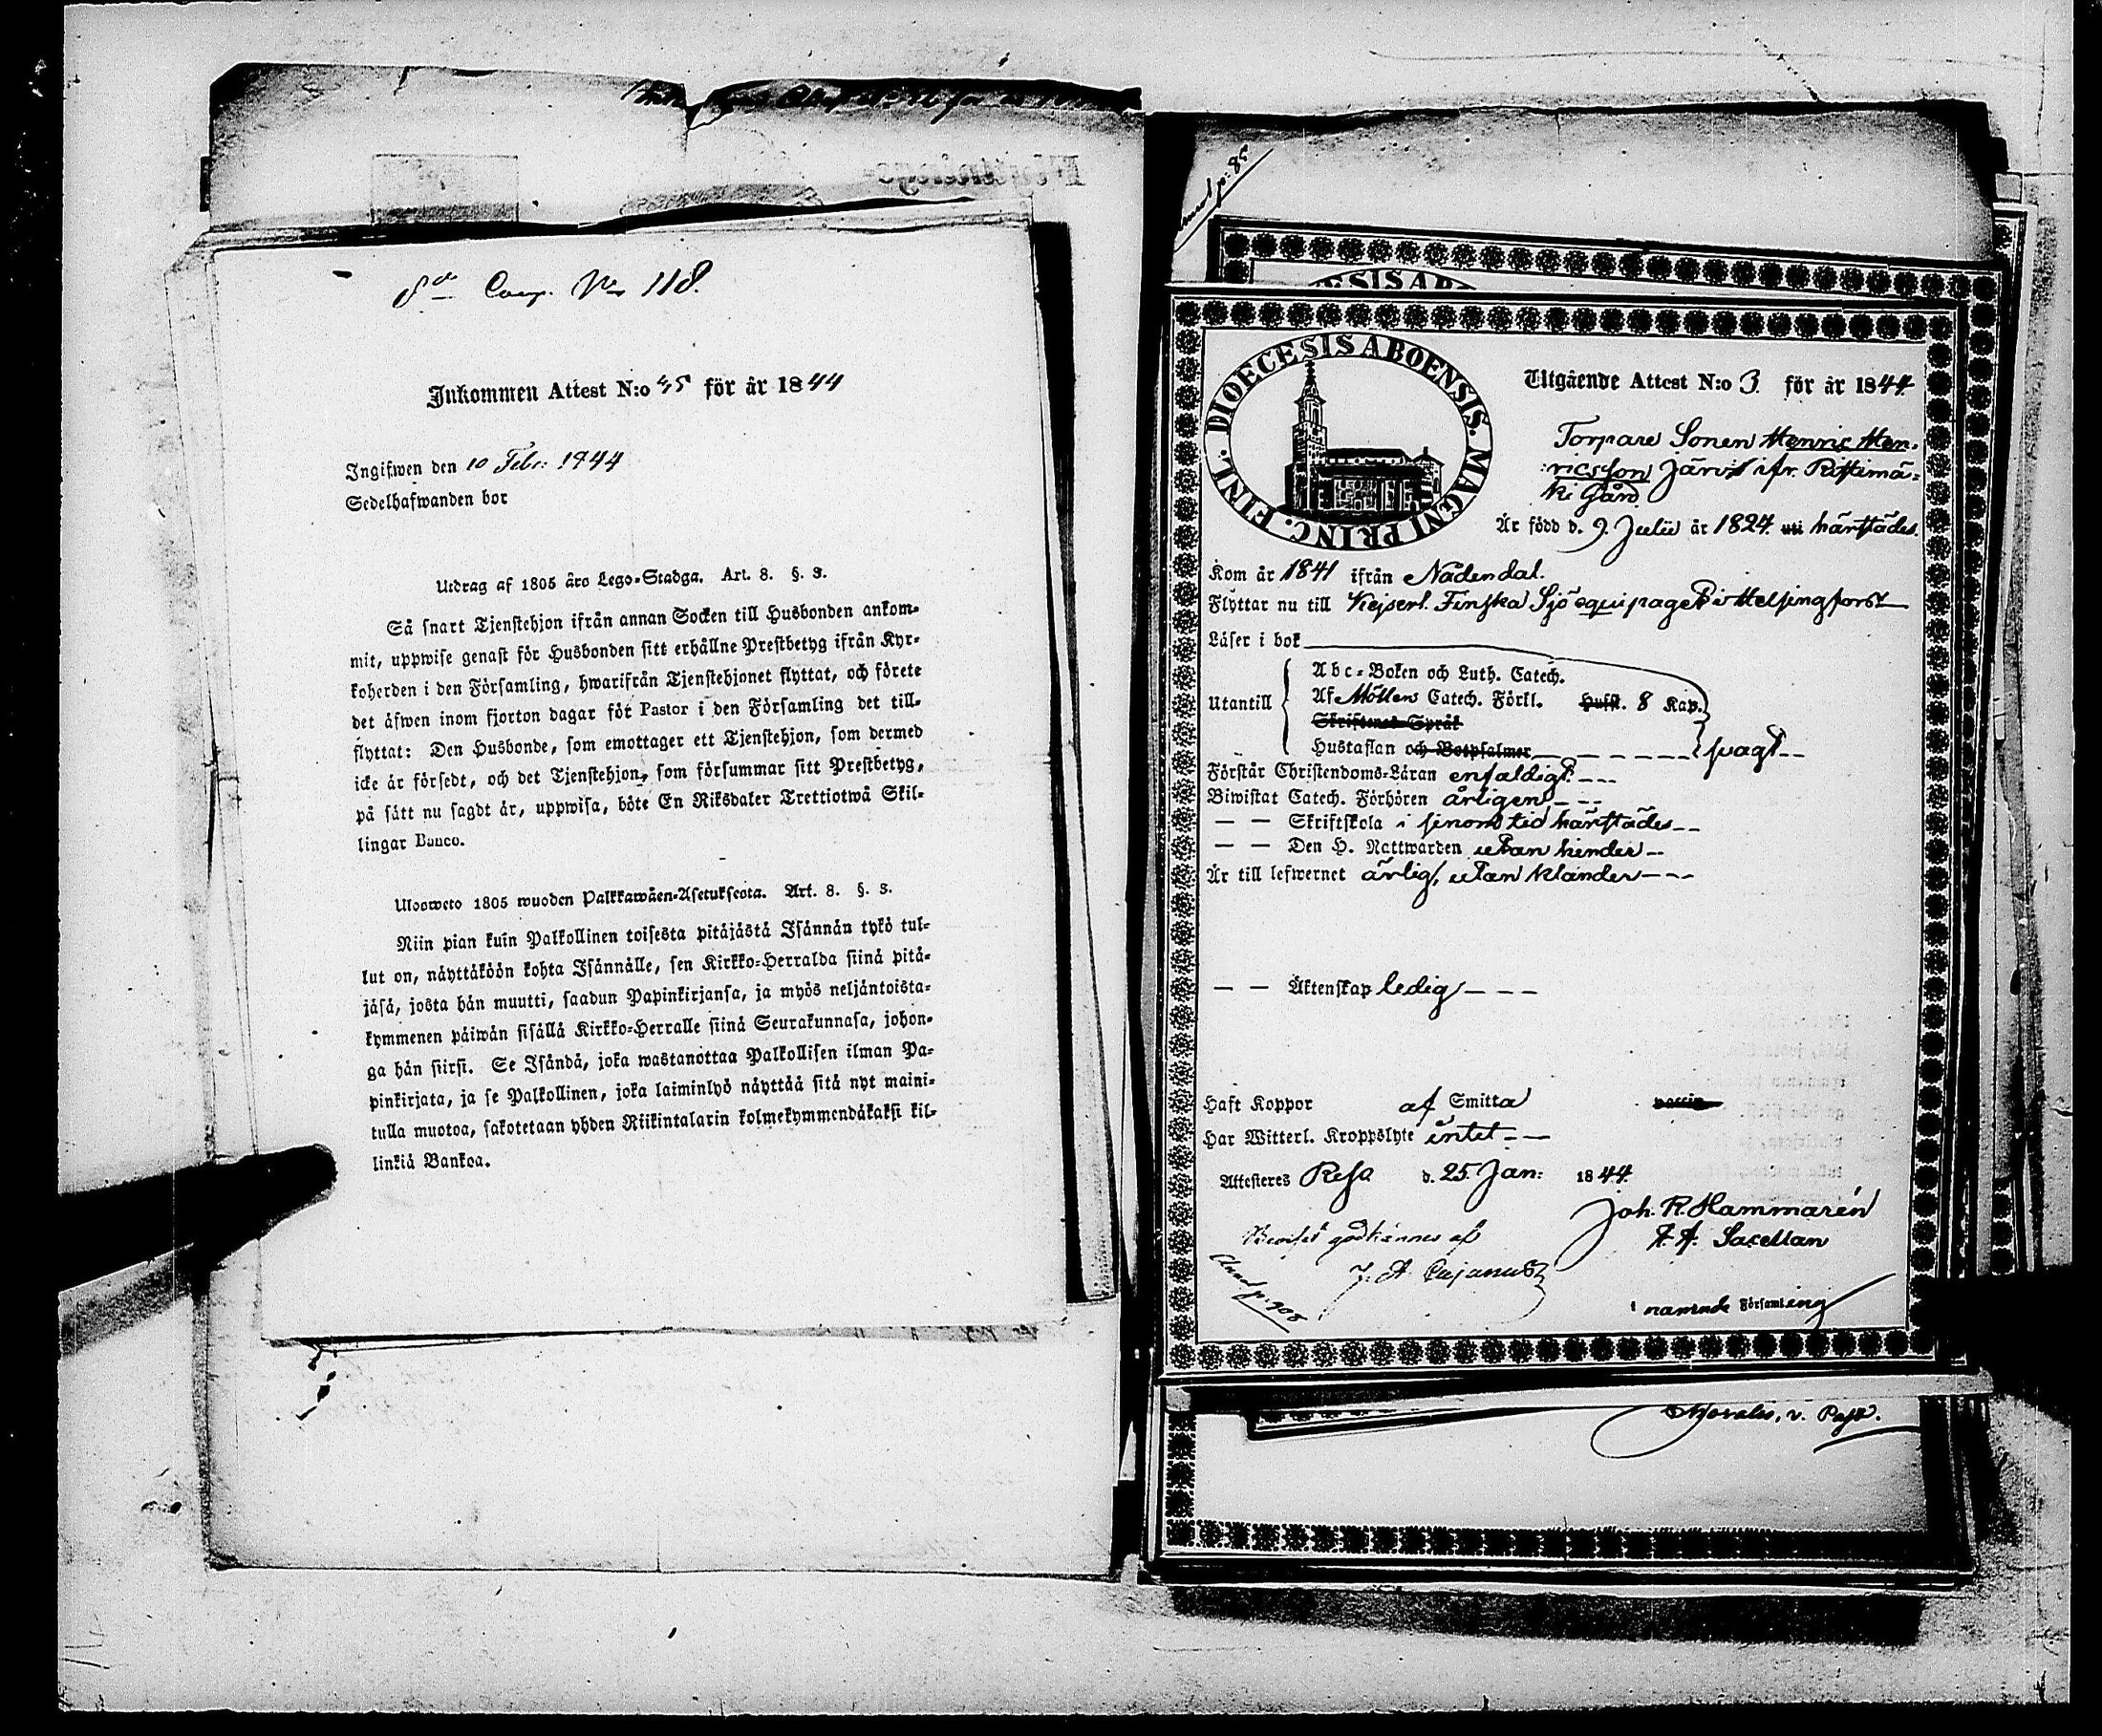 8de Comp. No 118.
Inkommen Attest N:o 45 för år 1844
Ingifwen den 10 Febr: 1844
Sedelhafwanden bor
Utdrag af 1805 års Lego-Stadga. Art. 8. §. 3.
Så snart Tjenstehjon ifrån annan Socken till Husbonden ankom-
mit, uppwise genast för Husbonden sitt erhållne Prestbetyg ifrån Kyr-
koherden i den Församling, hwarifrån Tjenstehjonet flyttat, och förete
det äfwen inom fjorton dagar för Pastor i den Församling det till-
flyttat: Den Husbonde, som emottager ett Tjenstehjon, som dermed
icke är försedt, och det Tjenstehjon, som försummar sitt Prestbetyg,
på sätt nu sagdt är, uppwisa, böte En Riksdaler Trettiotwå Skil-
lingar Banco.
Uloosweto 1805 wuoden Palkkawäen-Asetuksesta. Art. 8. §. 3.
Niin pian kuin Palkollinen toisesta pitäjästä Isännän tykö tul-
lut on, näyttäköön kohta Isännälle, sen Kirkko-Herralda siinä pitä-
jäsä, josta hän muutti, saadun Papinkirjansa, ja myös neljäntoista-
kymmenen päiwän sisällä Kirkko-Herralle siinä Seurakunnasa, johon-
ga hän siirsi. Se Isändä, joka wastanottaa Palkollisen ilman Pa-
pinkirjata, ja se Palkollinen, joka laiminlyö näyttää sitä nyt maini-
tulla muotoa, sakotetaan yhden Riikintalarin kolmekymmendäkaksi kil-
linkiä Bankoa.
p: 85
DIOECESIS ABOENSIS. MAGNI PRINC. FINL.
Utgående Attest N:o 3. för år 1844.
Torpare Sonen Henric Hen-
ricsson Järvi ifr. Ristimä-
ki Gård
Är född d. 9. Julii år 1824. uti härstädes.
Kom år 1841 ifrån Nådendal.
Flyttar nu till Kejserl. Finska Sjö equipaget i Helsingfors
Läser i bok
Abc-Boken och Luth. Catech.
Utantill Af Möllers Catech. Förkl. Husst. 8 Kap.
Skriftenes Språk
Hustaflan och Botpsalmer svagt
Förstår Christendoms-Läran enfaldigt
Biwistat Catech. Förhören årligen
— — Skriftskola i sinom tid härstädes
— — Den H. Nattwarden utan hinder
Är till lefwernet ärlig, utan klander
— — Äktenskap ledig
Haft Koppor af Smitta
Har Witterl. Kroppslyte intet
Attesteres Reso d. 25. Jan: 1844.
Joh. R. Hammarén
Beviset godkännes af
Sacellan
J. A. Cajanus
Annot p: 908
i namnde Församling
v. Past.